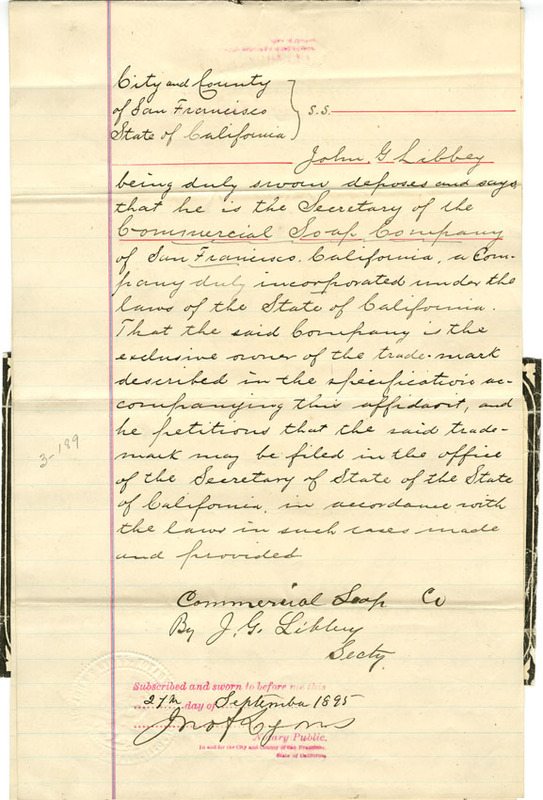 City and County
of San Francisco } S.S.
State of California
John. G Libbey
being duly sworn deposes and says
that he is the Secretary of the
Commercial Soap Company
of San Francisco, California, a Com-
pany duly incorporated under the
laws of the State of California.
That the said Company is the
exclusive owner of the trade-mark
described in the specifications ac-
companying this affidavit, and
he petitions that the said trade-
mark may be filed in the office
of the Secretary of State of the State
of California, in accordance with
the laws in such cases made
and provided
3-189
Commercial Soap Co
By J. G. Libbey
Secty.
Subscribed and sworn to before me this
27th day of September 1895
Jno F Lyons
Notary Public.
In and for the City and County of San Francisco,
State of California.